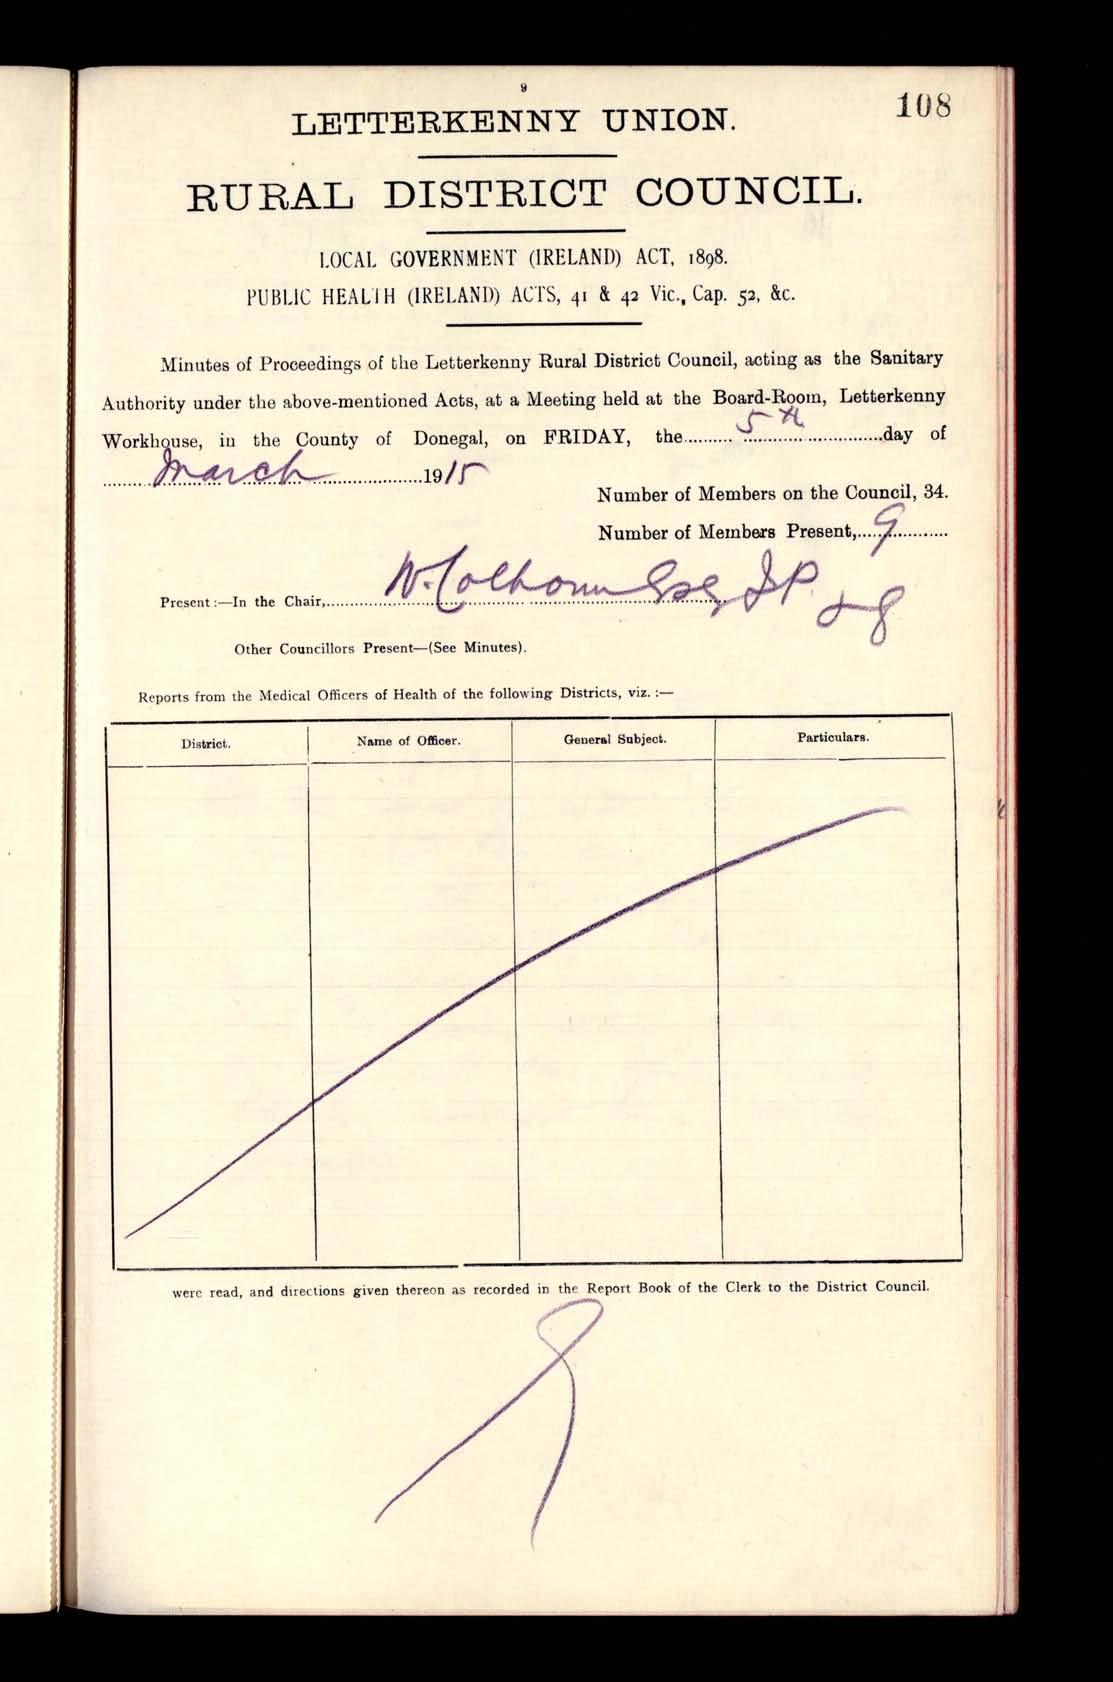 9
108
LETTERKENNY UNION.
RURAL DISTRICT COUNCIL.
LOCAL GOVERNMENT (IRELAND) ACT, 1898.
PUBLIC HEALTH (IRELAND) ACTS, 41 & 42 Vic., Cap. 52, &c.
Minutes of Proceedings of the Letterkenny Rural District Council, acting as the Sanitary
Authority under the above-mentioned Acts, at a Meeting held at the Board-Room, Letterkenny
Workhouse, in the County of Donegal, on FRIDAY, the 5th day of
March 1915
Number of Members on the Council, 34.
Number of Members Present, 9
Present:—In the Chair, W. Colhoun Esq J.P. & 8
Other Councillors Present—(See Minutes).
Reports from the Medical Officers of Health of the following Districts, viz. :—
District. Name of Officer. General Subject. Particulars.
were read, and directions given thereon as recorded in the Report Book of the Clerk to the District Council.